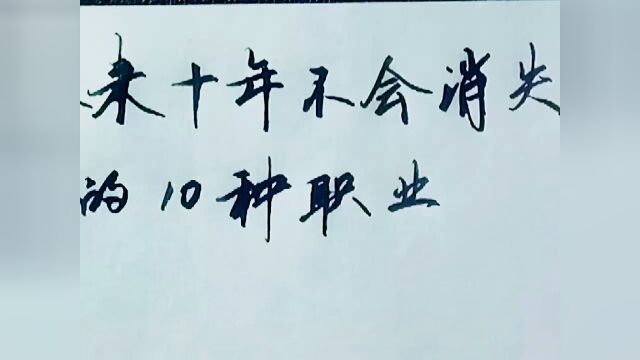 来十年不会消失
的10种职业